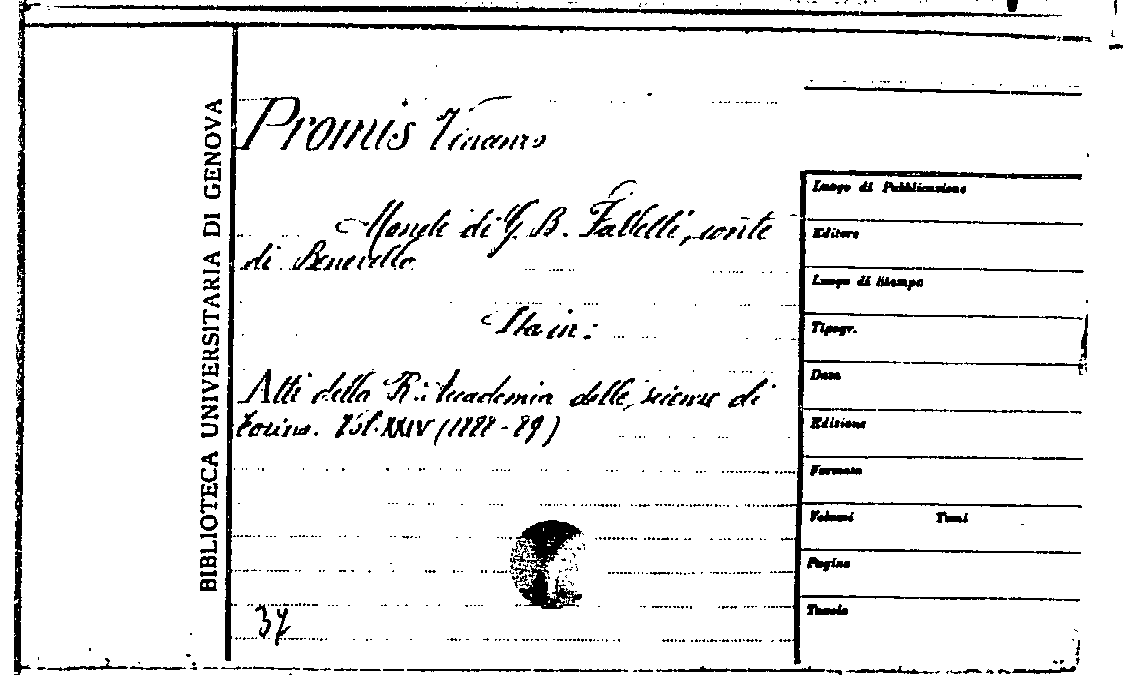 BIBLIOTECA UNIVERSITARIA DI GENOVA
Promis Vincenzo
Monete di G. B. Falletti, conte
di Benevello
Sta in:
Atti della R. Accademia delle scienze di
Torino. Vol. XXIV (1888-89)
37
Luogo di Pubblicazione
Editore
Luogo di Stampa
Tipogr.
Data
Edizione
Formato
Volumi Tomi
Pagine
Tavole